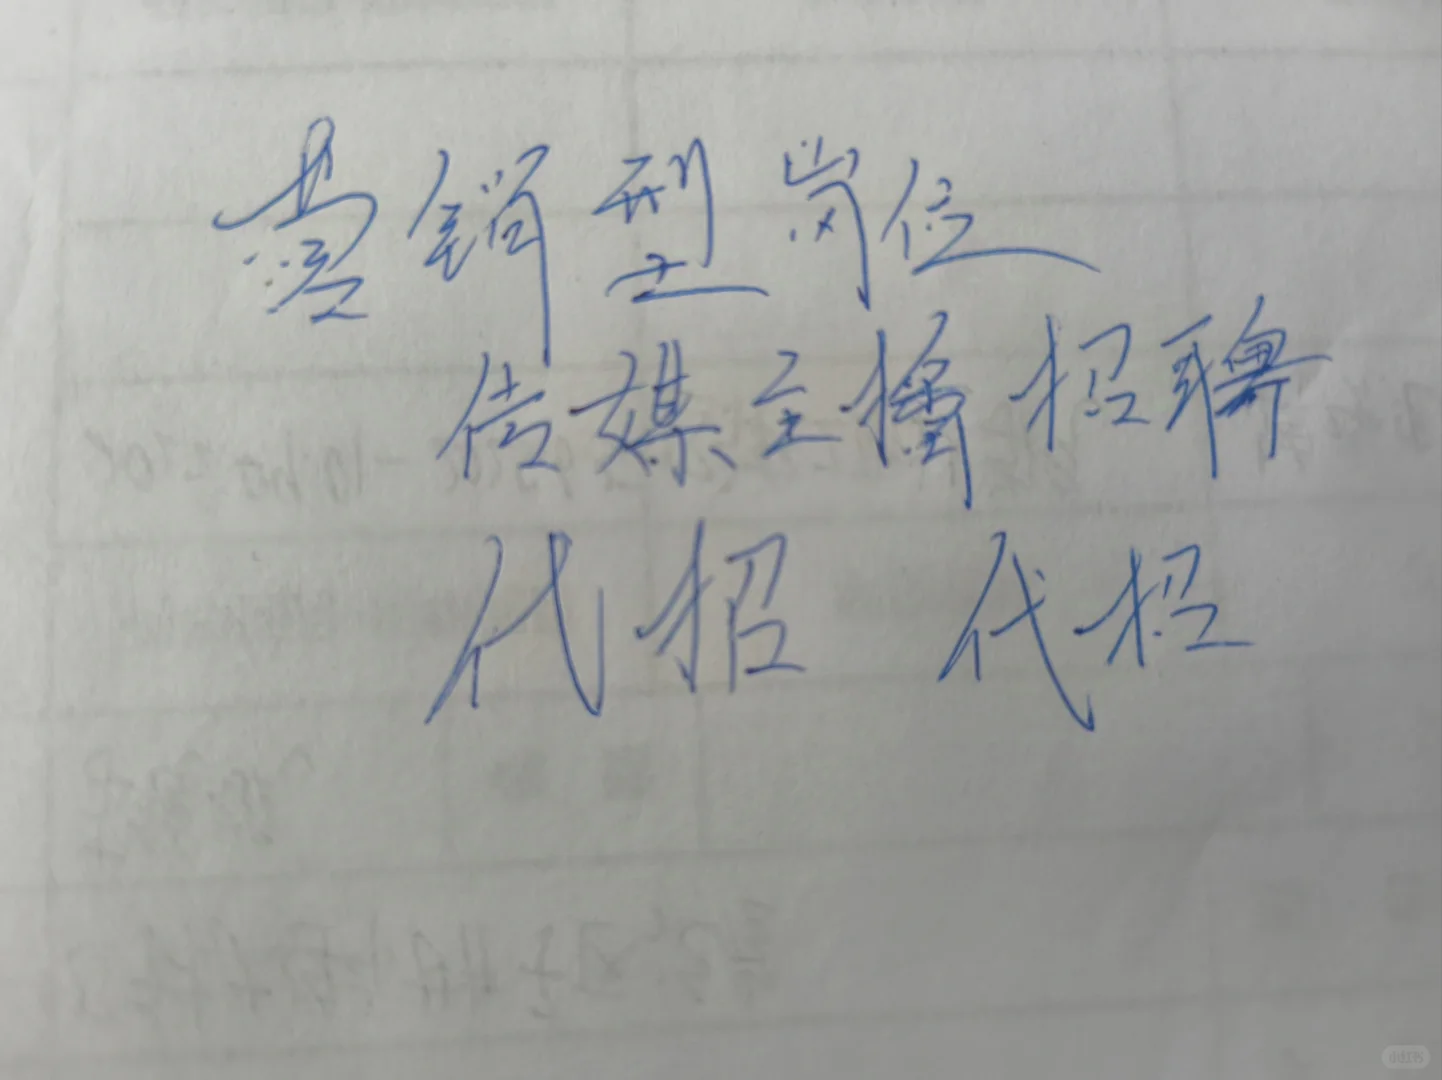 营销型岗位
传媒主播招聘
代招 代招
小红书